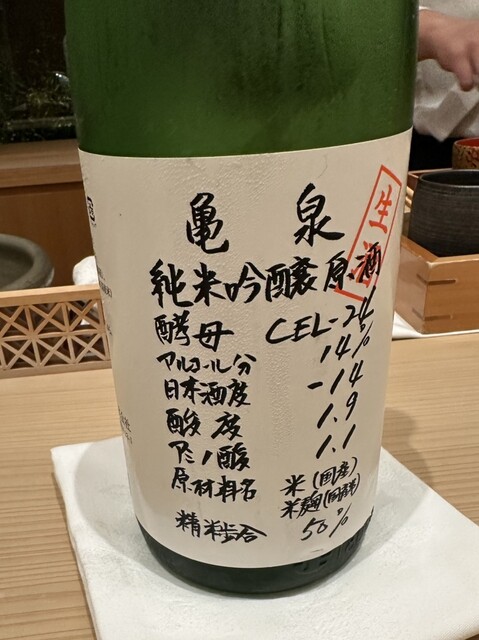 亀泉
生酒
純米吟醸原酒
酵母 CEL-24
アルコール分 14%
日本酒度 -14
酸度 1.9
アミノ酸 1.1
原材料名 米(国産)
米麹(国産米)
精米歩合 50%